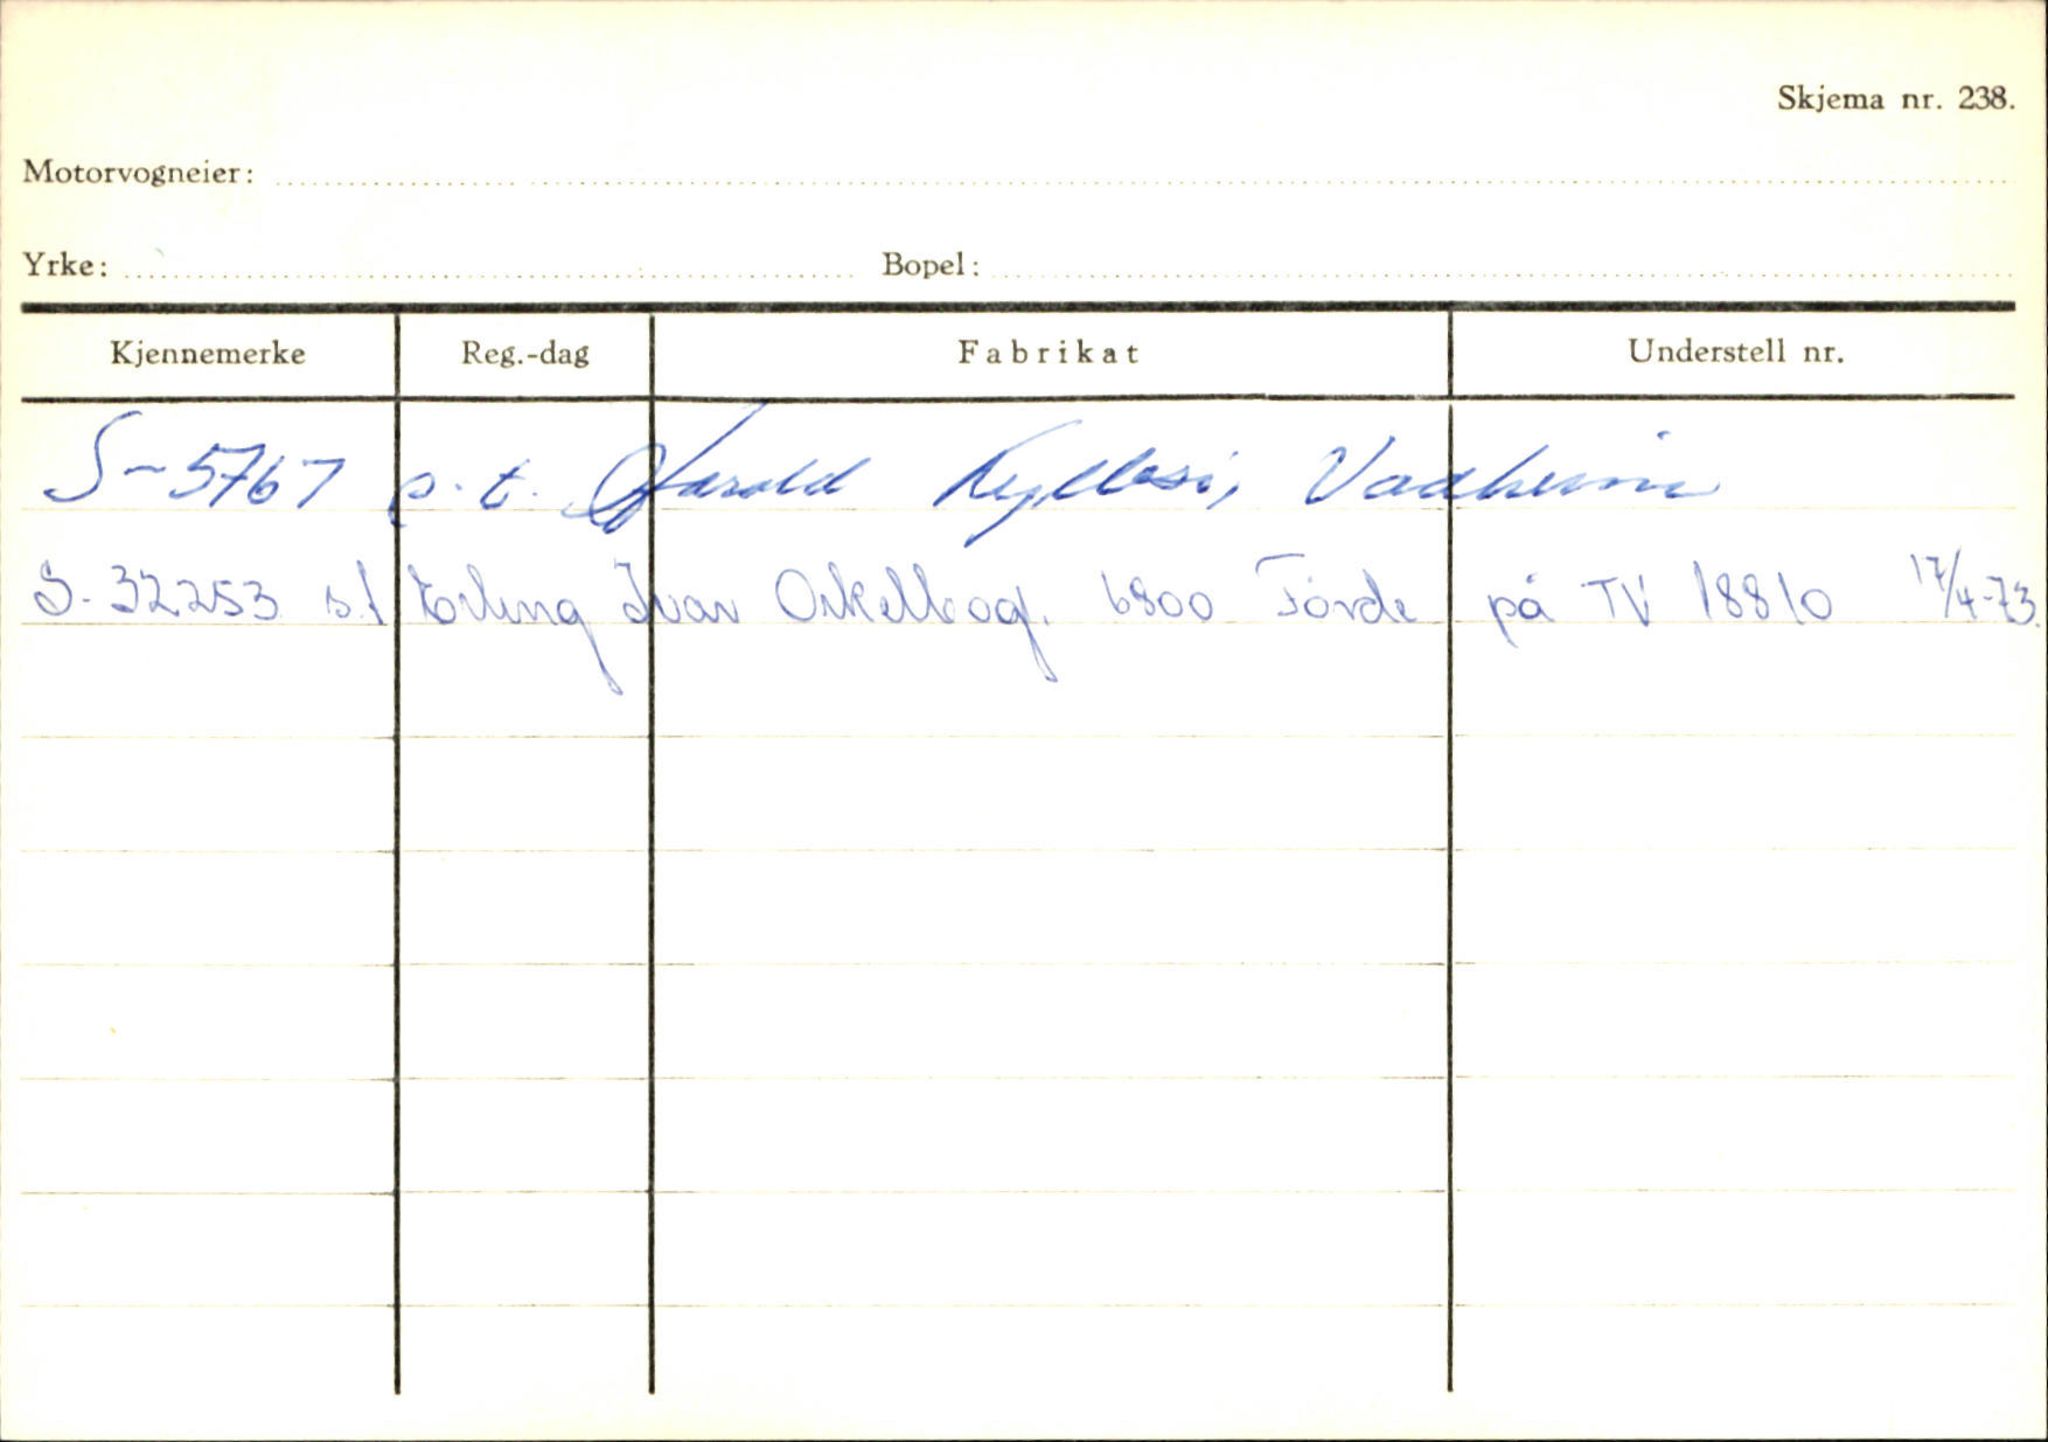 Skjema nr. 238.
Motorvogneier:
Yrke: Bopel:
Kjennemerke Reg.-dag Fabrikat Understell nr.
S-5767 s.t. Harald Vadheim
S-32253 s.t Erling Ivar 6800 Förde på TV 18810 17/4-73.